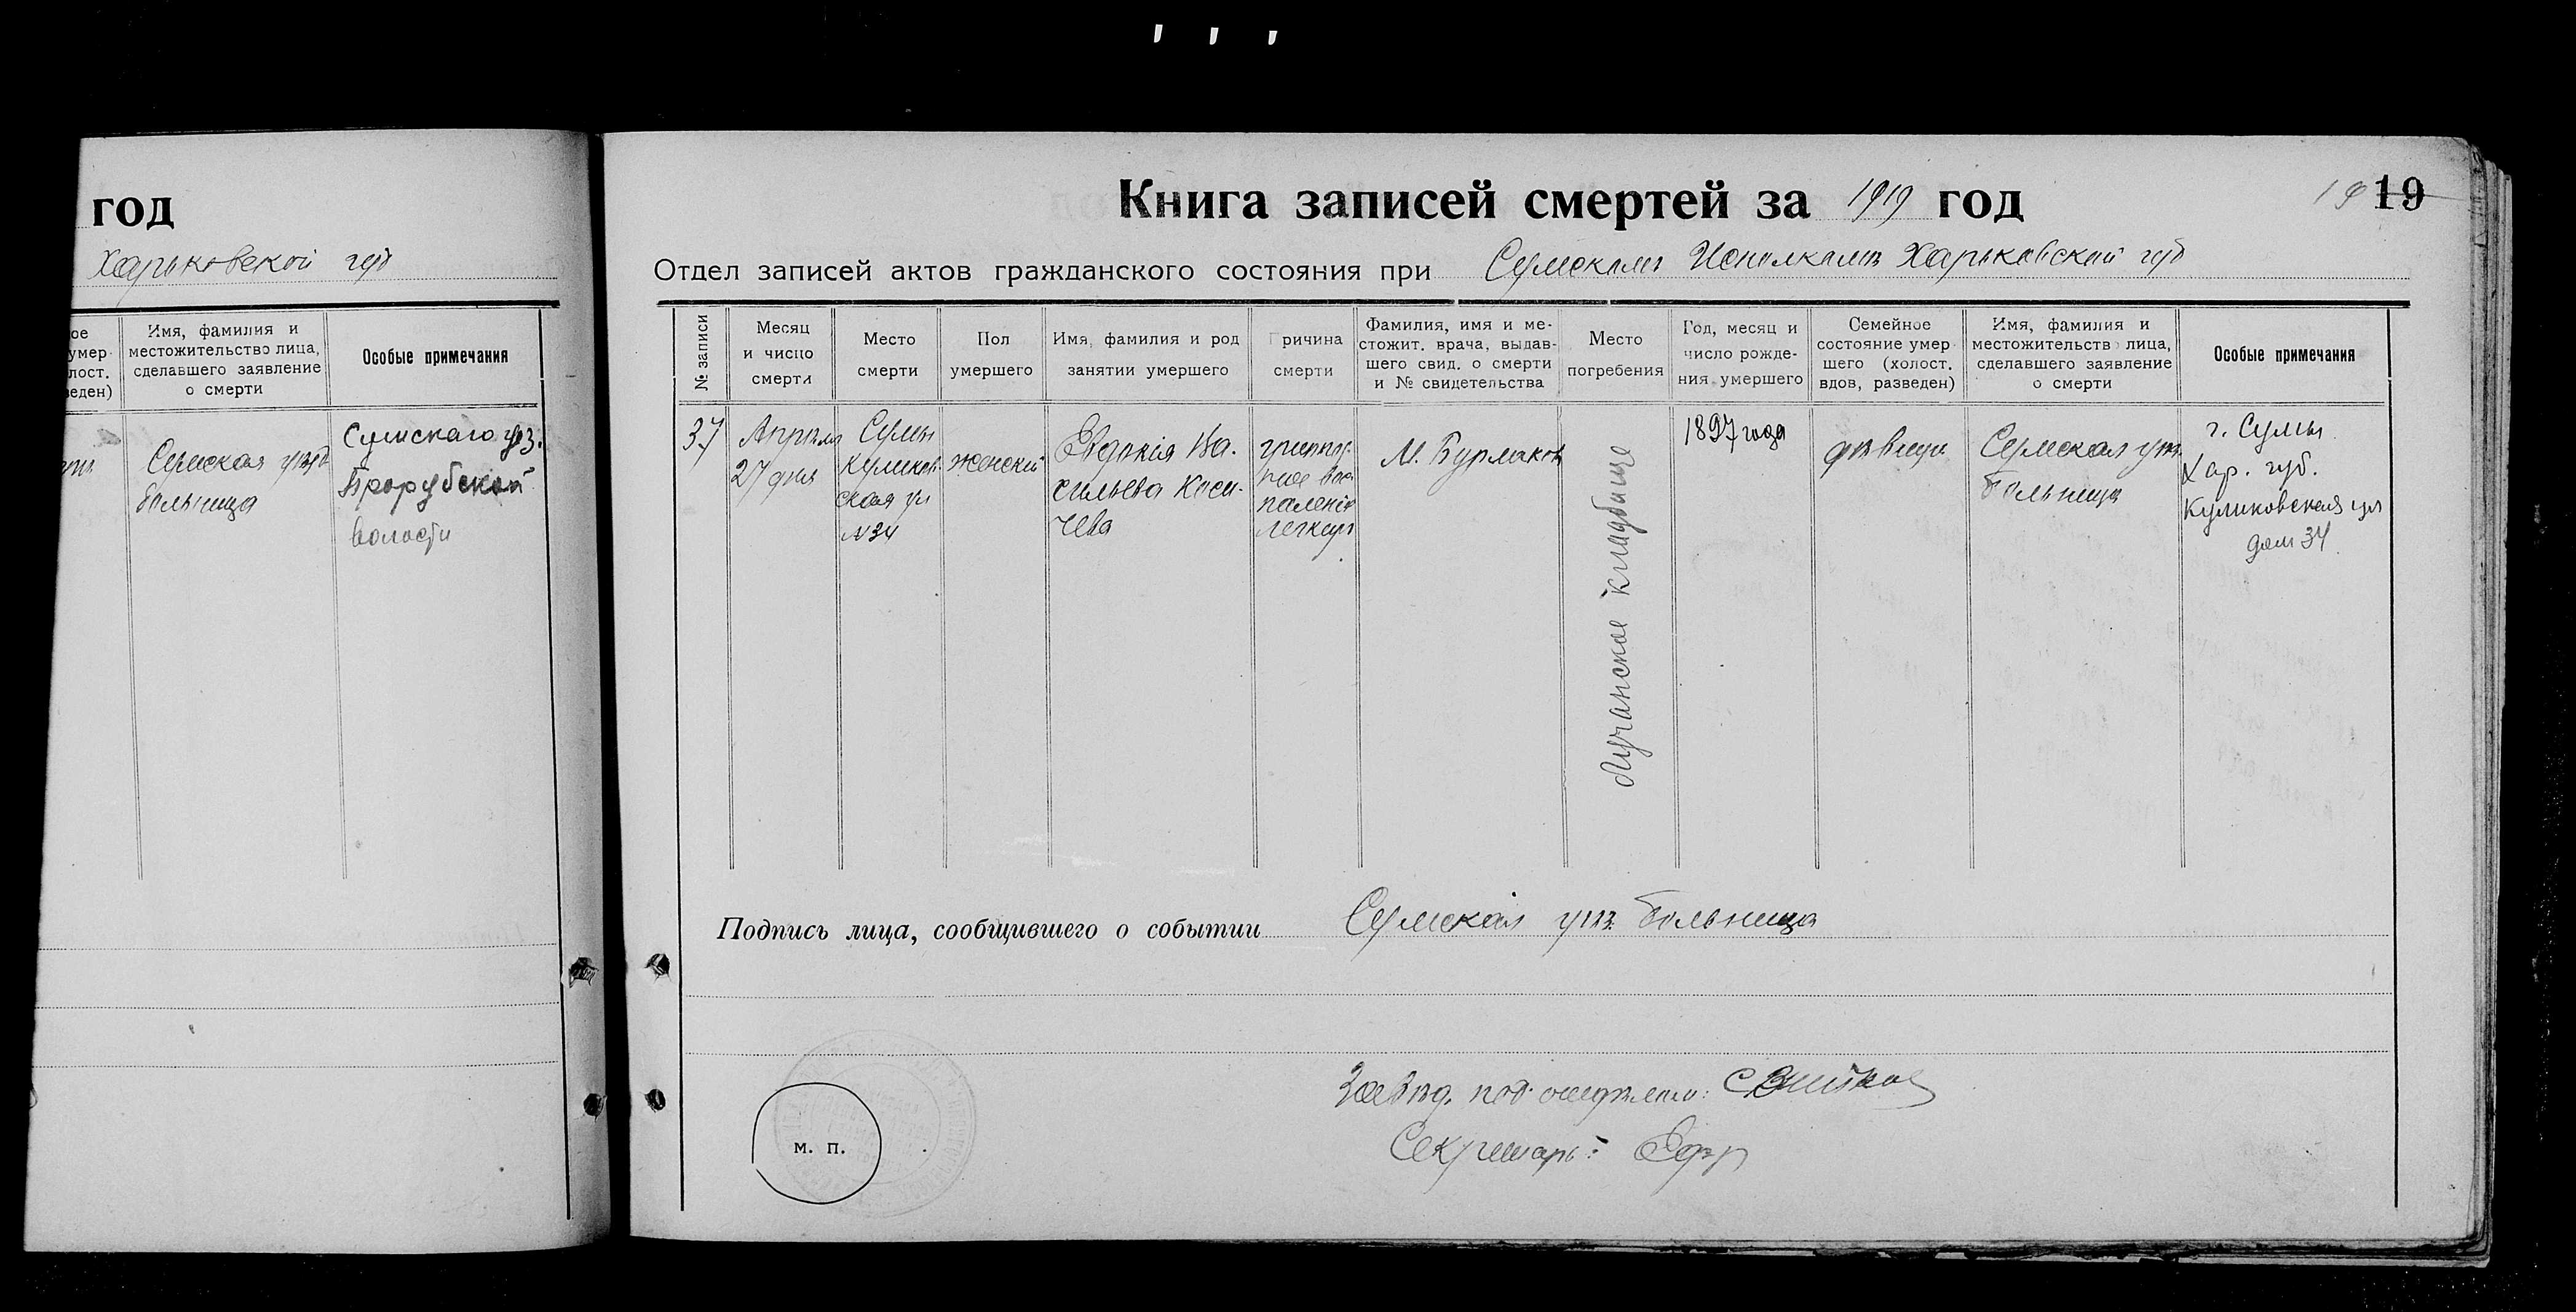 год
Харьковской губ
ое
умер-
лост.
веден)
Имя, фамилия и
местожительство лица,
сделавшего заявление
о смерти
Особые примечания
Сумская уѣзд
больница
Сумскаго уѣз.
Прорубской
волости
Книга записей смертей за 1919 год
19 19
Отдел записей актов гражданского состояния при Сумском Исполкомѣ Харьковской губ
№ записи
Месяц
и число
смерти
Место
смерти
Пол
умершего
Имя, фамилия и род
занятии умершего
Причина
смерти
Фамилия, имя и ме-
стожит. врача, выдав-
шего свид. о смерти
и № свидетельства
Место
погребения
Год, месяц и
число рожде-
ния умершего
Семейное
состояние умер
шего (холост.
вдов, разведен)
Имя, фамилия и
местожительство лица,
сделавшего заявление
о смерти
Особые примечания
37
Апрѣля
27 дня
Сумы
Куликов
ская ул
№34
женский
Евдокія Ва.
сильева Коси-
чева
гриппоз.
ное вос
паленіе
легких
М. Бурлаков
Лучанское кладбище
1897 года
дѣвица
Сумская уѣз.
больница
г. Сумы
Хар. губ.
Куликовская ул
дом 34
Подпись лица, сообщившего о событии Сумская уѣз. больница
Завѣд. под. отдѣлом:
Секретарь:
м. п.